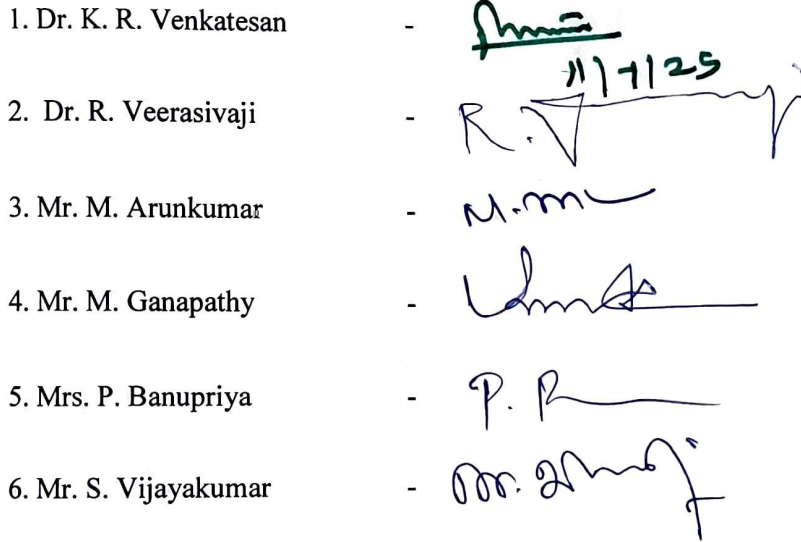 1. Dr. K. R. Venkatesan -
11/7/25
2. Dr. R. Veerasivaji - R.
3. Mr. M. Arunkumar -
4. Mr. M. Ganapathy -
5. Mrs. P. Banupriya - P.
6. Mr. S. Vijayakumar -